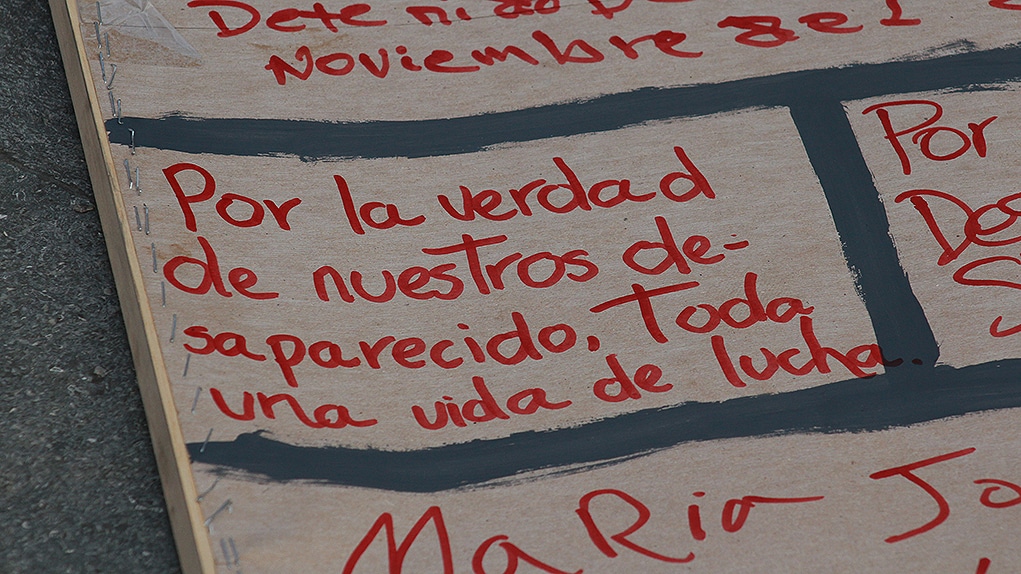 Detenido
Noviembre de 1
Por la verdad
de nuestros de-
saparecido, Toda
una vida de lucha.
Por
Des
Maria Jo